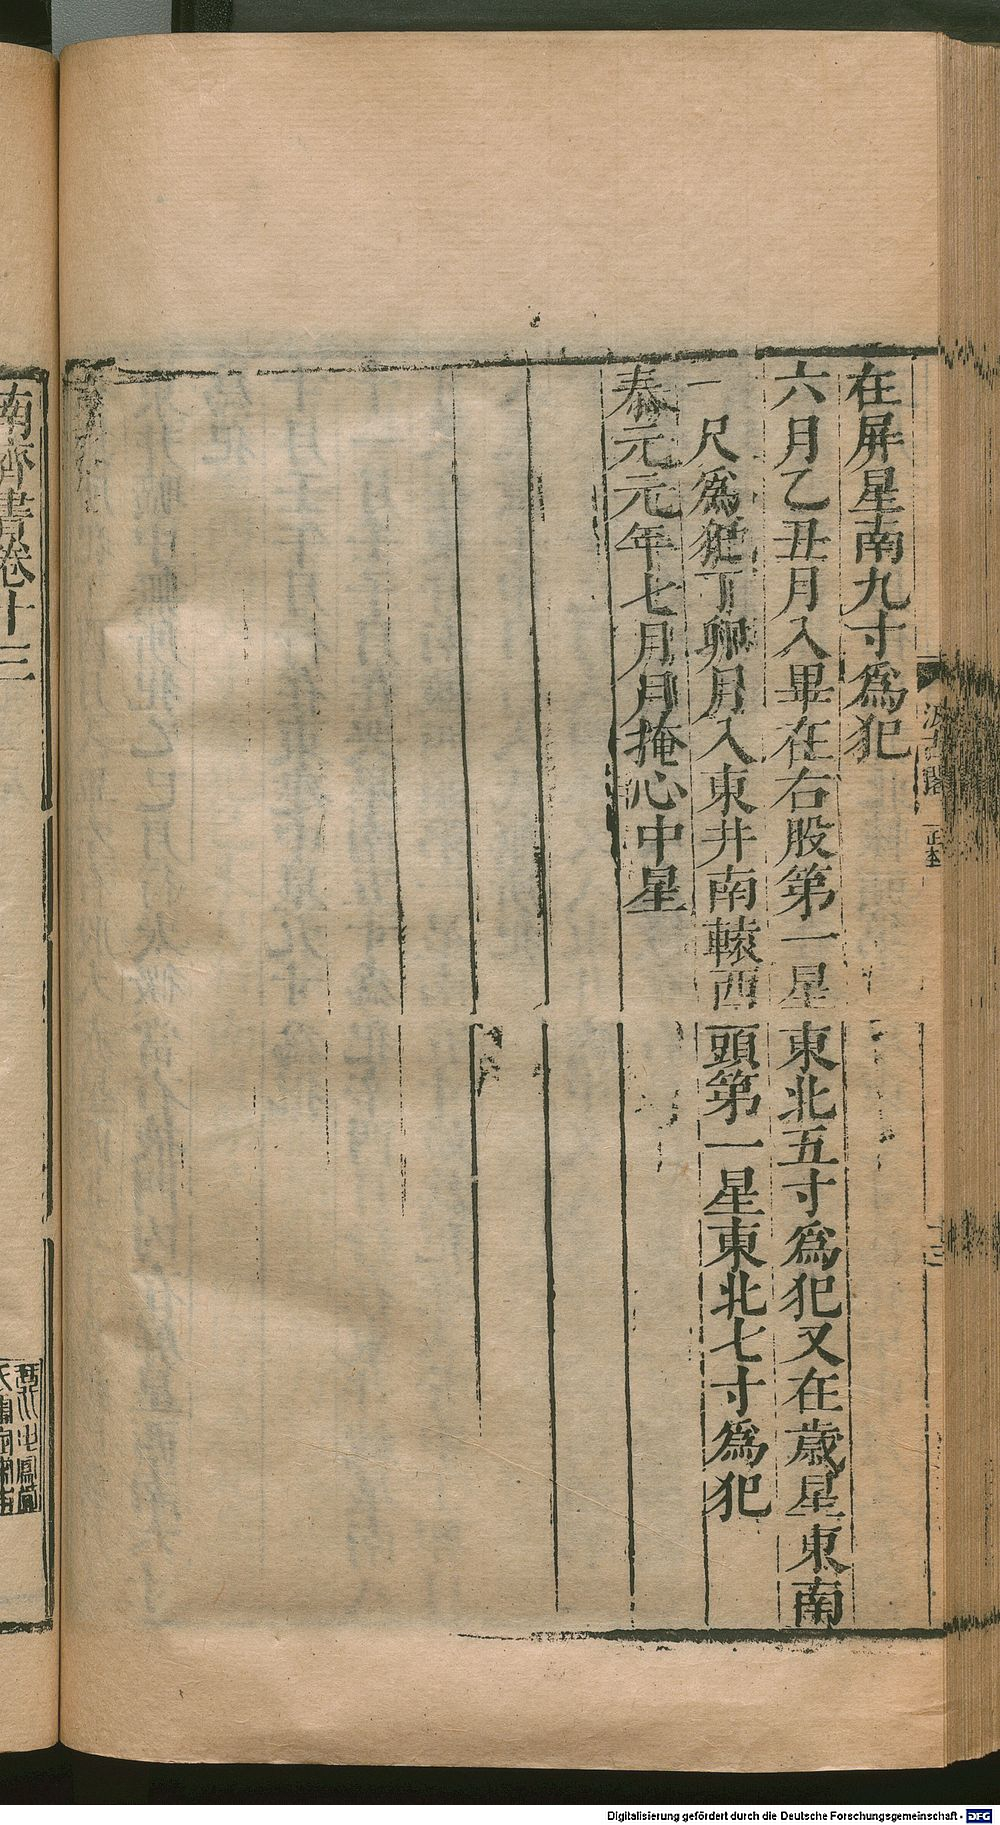 在屏星南九寸爲犯
六月乙丑月入畢在右股第一星東北五寸爲犯又在歲星東南
一尺爲犯丁卯月入東井南轅西頭第一星東北七寸爲犯
泰元元年七月月掩心中星
汲古閣
南齊書卷十三
Digitalisierung gefördert durch die Deutsche Forschungsgemeinschaft - DFG